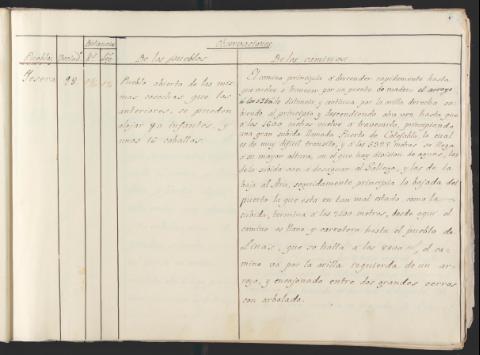 Observaciones
Distancia
Pueblos
De los pueblos
De los caminos
Yesera 28.
Pueblo abierto de las mis-
mas cosechas que los
anteriores, se pueden
alojar 90 infantes, y
unos 15 caballos.
El camino principia a descender rapidamente hasta
que vuelve a por un puente de madera el arroyo
distancia y continua por la orilla derecha su-
biendo al principio y descendiendo otra vez hasta que
a los metros vuelve a atravesarlo, principiando
una gran subida llamada Puerto de la cual
es de muy dificil transito, y a los metros se llega
a su mayor altura, en el que hay division de aguas, las
dela subida van a desaguar al Gallego, y las de la
baja al Ara, seguidamente principia la bajada del
puerto la que esta en tan mal estado como la
subida, termina a los metros, desde aqui el
camino es llano y carretera hasta el pueblo de
Linas, que se halla a los el ca-
mino va por la orilla izquierda de un ar-
royo, y encajonado entre dos grandes serros
con arbolado.